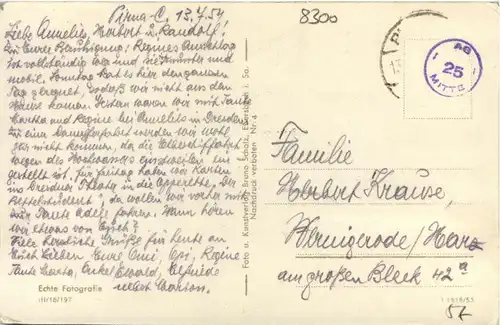 Pirna-C. 13.7.54
Liebe Annelies, Herbert u. Randolf!
Zu Eurer Beruhigung: Regines Ausschlag
ist vollständig weg und sie munter und
mobil. Sonntag hat es hier den ganzen
Tag geregnet, sodaß wir nicht aus dem
Hause kamen. Gestern waren wir mit Tante
Martha und Regine bei Annelies in Dresden
Zu einer Dampferfahrt werden wir wohl
hier nicht kommen, da die Elbeschiffahrt
wegen des Hochwassers einstweilen ein-
gestellt ist. Für Freitag haben wir Karten
im Dresdner Theater in die Operette: Der
Bettelstudent", da wollen wir vorher mit
zur Tante Adele fahren. Wann hören
wir etwas von Euch?
Viele herzliche Grüße für heute an
Euch Lieben Eure Omi, Opi, Regine
Tante Marta, Onkel Ewald, Elfriede
nebst Marion.
Echte Fotografie
III/18/197
Foto u. Kunstverlag Bruno Scholz, Ebersbach i. Sa.
Nachdruck verboten Nr. 4
8300
AG
25
MITTG
Familie
Herbert Krause,
Wernigerode/Harz
am großen Bleek 42a
57